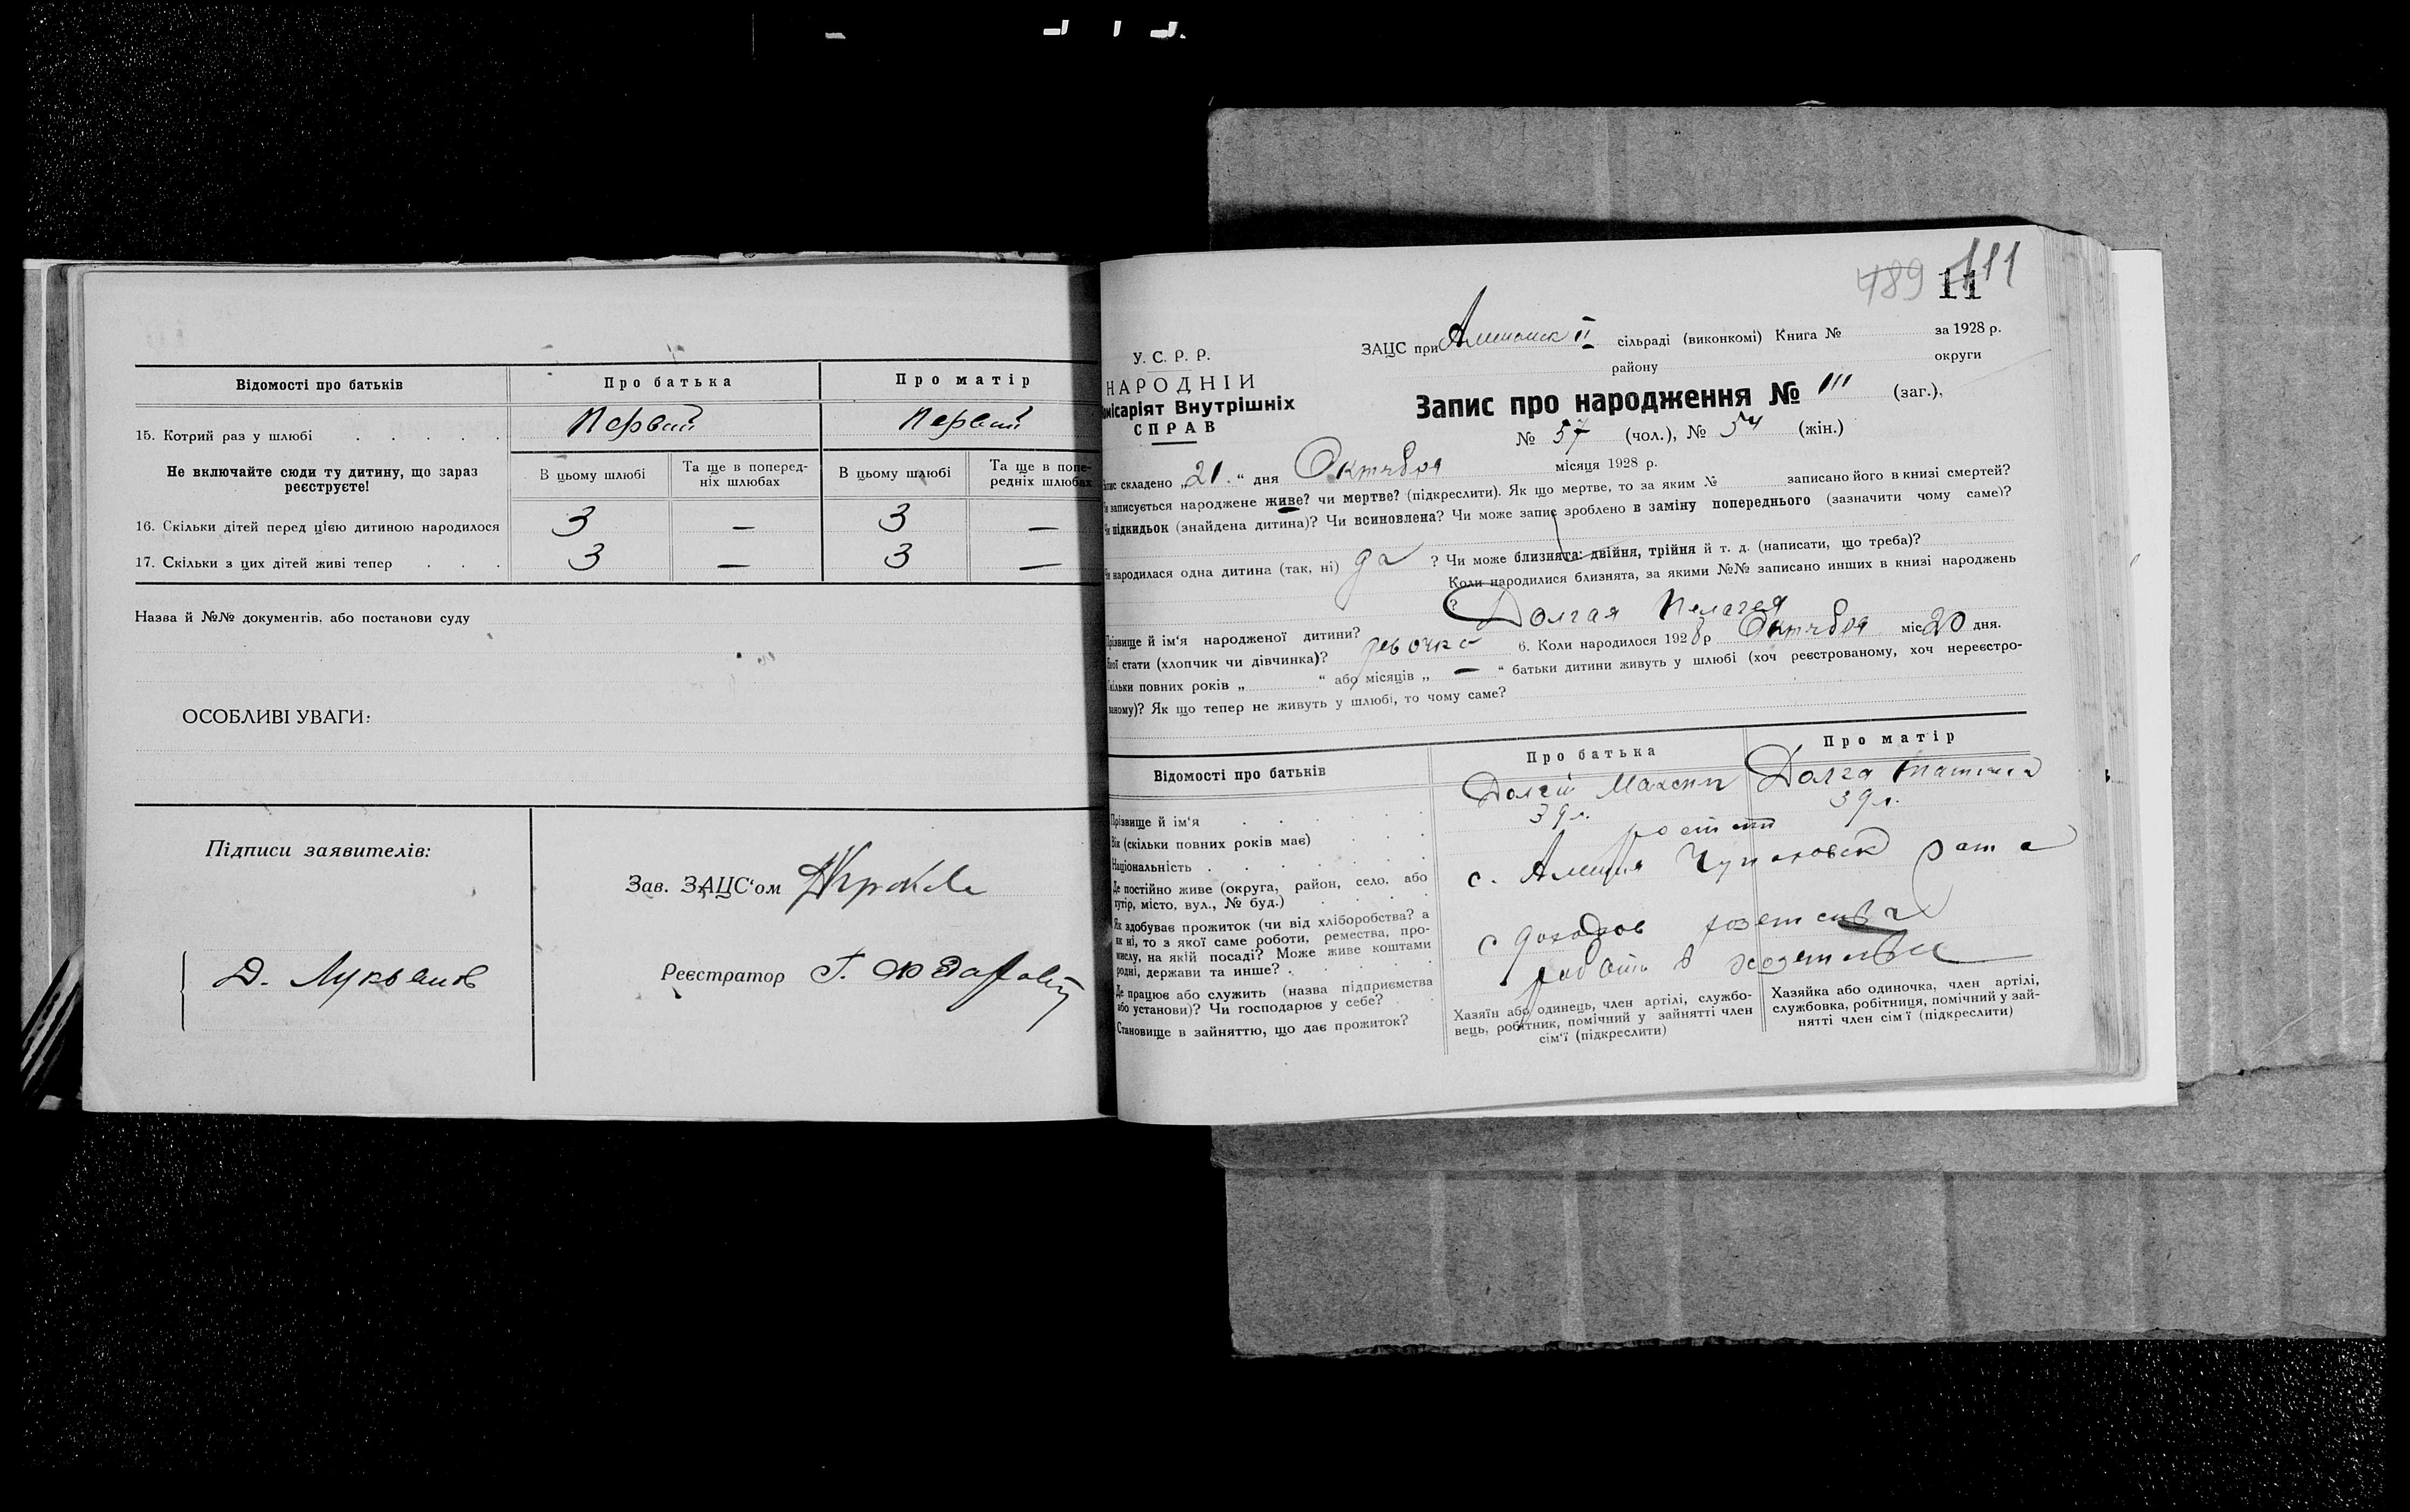 Відомості про батьків Про батька Про матір
15. Котрий раз у шлюбі . . . . . Первый Первый
Не включайте сюди ту дитину, що зараз реєструєте!
В цьому шлюбі Та ще в поперед-ніх шлюбах В цьому шлюбі Та ще в попе-редніх шлюбах
16. Скільки дітей перед цією дитиною народилося 3 — 3 —
17. Скільки з цих дітей живі тепер . . . 3 — 3 —
Назва й №№ документів, або постанови суду
ОСОБЛИВІ УВАГИ:
Підписи заявителів:
Зав. ЗАЦС'ом
Д. Лукьянов
Реєстратор Г.
489 111
11
У. С. Р. Р.
НАРОДНІЙ
омісаріят Внутрішніх
СПРАВ
ЗАЦС при II сільраді (виконкомі) Книга № за 1928 р.
району округи
Запис про народження № 111 (заг.),
№ 57 (чол.), № 54 (жін.)
пис складено „21.“ дня Октября місяця 1928 р.
и записується народжене живе? чи мертве? (підкреслити). Як що мертве, то за яким № записано його в книзі смертей?
Чи підкидьок (знайдена дитина)? Чи всиновлена? Чи може запис зроблено в заміну попереднього (зазначити чому саме)?
и народилася одна дитина (так, ні) да ? Чи може близнята: двійня, трійня й т. д. (написати, що треба)?
Коли народилися близнята, за якими №№ записано инших в книзі народжень
?
Прізвище й ім'я народженої дитини? Долгая Пелагея
якої стати (хлопчик чи дівчинка)? девочка 6. Коли народилося 1928 р Октября міс 20 дня.
кільки повних років „ “ або місяців „ — “ батьки дитини живуть у шлюбі (хоч реєстрованому, хоч нереєстро-
ваному)? Як що тепер не живуть у шлюбі, то чому саме?
Відомості про батьків Про батька Про матір
Прізвище й ім'я . . . . . Долгій Максим Долга
Вік (скільки повних років має) . . . 39 л. 39 л.
Національність . . . . . .
Де постійно живе (округа, район, село, або
хутір, місто, вул., № буд.) . . . . с.
Як здобуває прожиток (чи від хліборобства? а
як ні, то з якої саме роботи, ремества, про-
мислу, на якій посаді? Може живе коштами
родні, держави та инше? . . . . . с доходов
Де працює або служить (назва підприємства
або установи)? Чи господарює у себе? . .
Становище в зайняттю, що дає прожиток?
Хазяїн або одинець, член артілі, службо-
вець, робітник, помічний у зайнятті член
сім'ї (підкреслити)
Хазяйка або одиночка, член артілі,
службовка, робітниця, помічний у зай-
нятті член сім'ї (підкреслити)